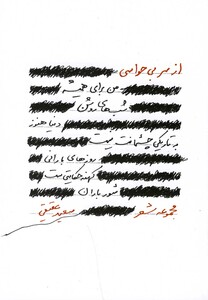 از سر بی حواسی
من برای همیشه
شبهای
دنیا هنوز
به تاریکی چشمانت نیست
روزهای بارانی
کهنه حکایتی ست
باران
مجموعه شعر سعید عقیقی